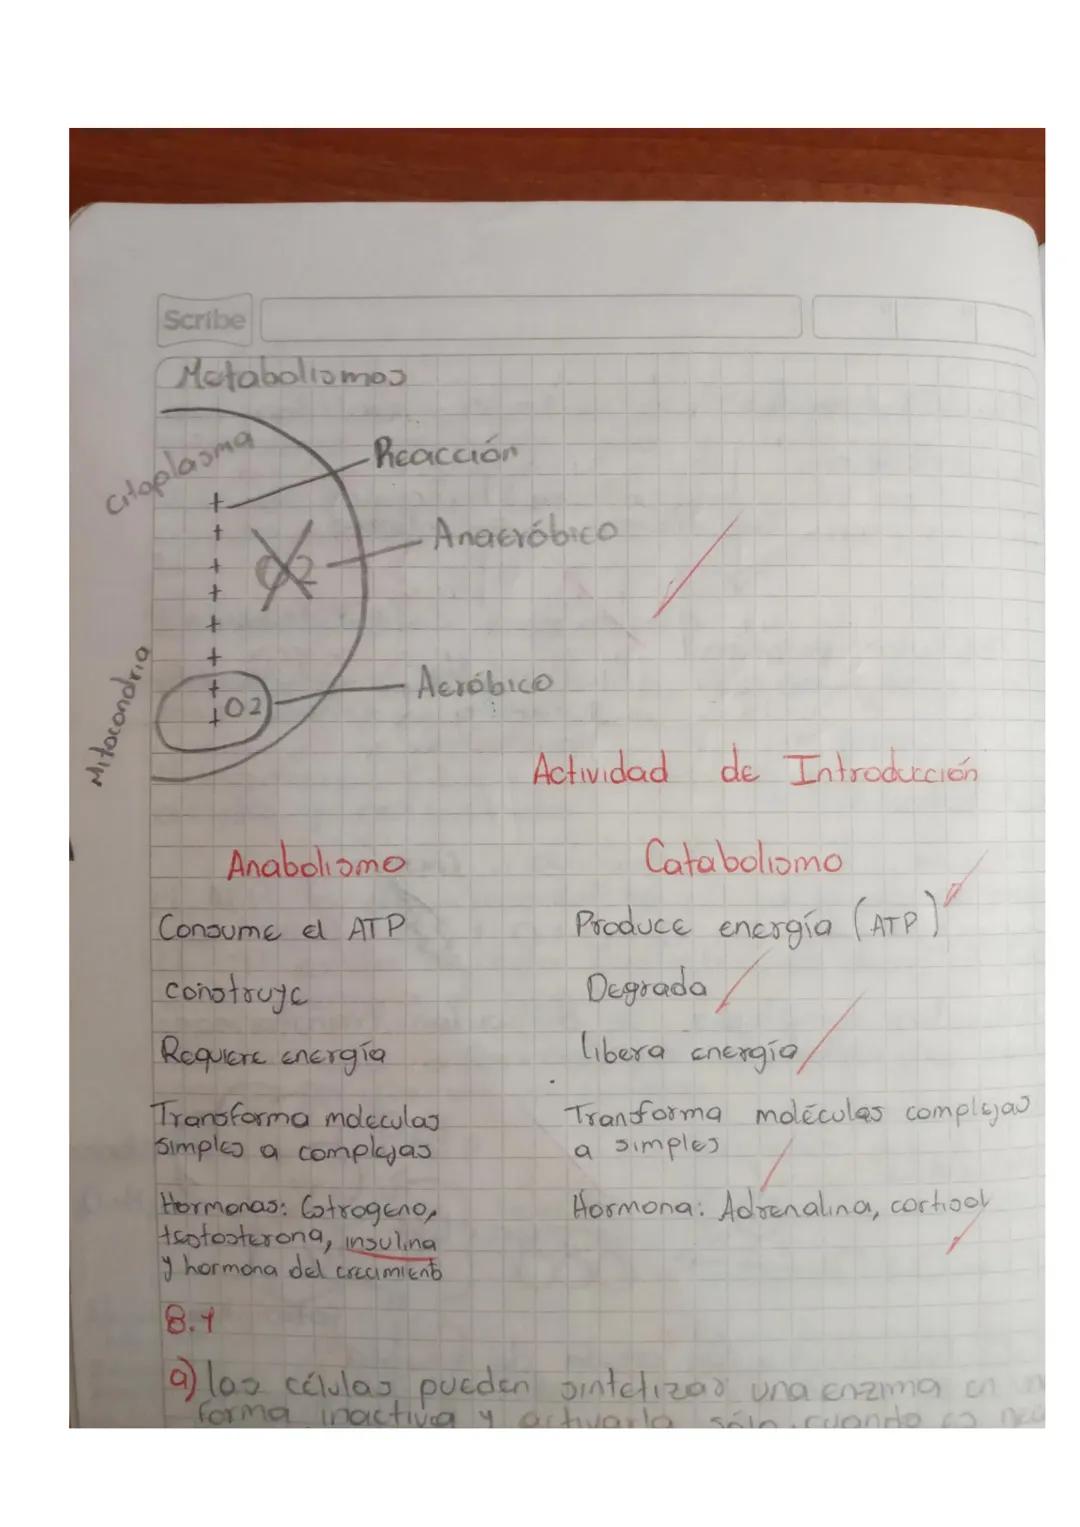 Scribe
Metabolismos
Citoplasma
Reacción
Anaeróbico
O2
Aeróbico
O2
Mitocondria
Actividad de Introducción
Anabolismo
Catabolismo
Consume el ATP
Produce energía (ATP)
construye
Degrada
Requiere energía
libera energía
Transforma moleculas
simples a complejas
Tranforma moléculas complejas
a simples
Hormonas: Estrogeno,
testosterona, insulina
y hormona del crecimiento
Hormona: Adrenalina, cortisol
8.1
a) las células pueden sintetizar una enzima en
forma inactiva y activarla sólo cuando es